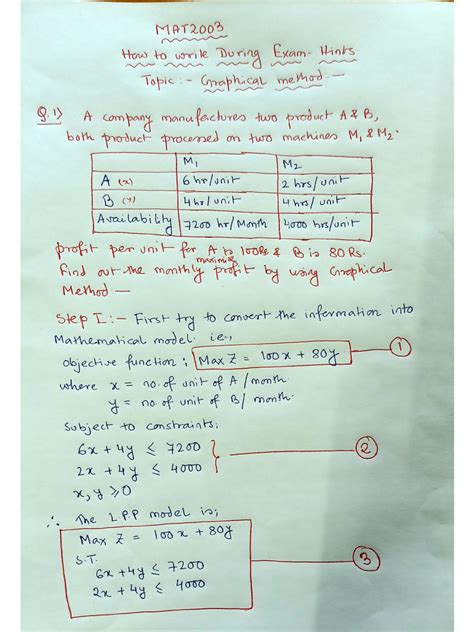 MAT2003
How to write During Exam. Hints.
Topic :- Graphical method. —
Q.1) A company manufactures two product A & B,
both product processed on two machines M1 & M2.
M1 M2
A (x) 6 hr/unit 2 hrs/unit
B (y) 4 hr/unit 4 hrs/unit
Availability 7200 hr/Month 4000 hrs/unit
profit per unit for A is 100Rs & B is 80 Rs.
maximize
Find out the monthly profit by using Graphical
Method —
Step I :- First try to convert the information into
Mathematical model. i.e.,
objective function ; Max Z = 100x + 80y ①
where x = no. of unit of A / month
y = no. of unit of B/ month.
Subject to constraints;
6x + 4y ≤ 7200
2x + 4y ≤ 4000 ②
x, y ≥ 0
∴ The L.P.P model is;
Max Z = 100x + 80y
S.T.
6x + 4y ≤ 7200 ③
2x + 4y ≤ 4000